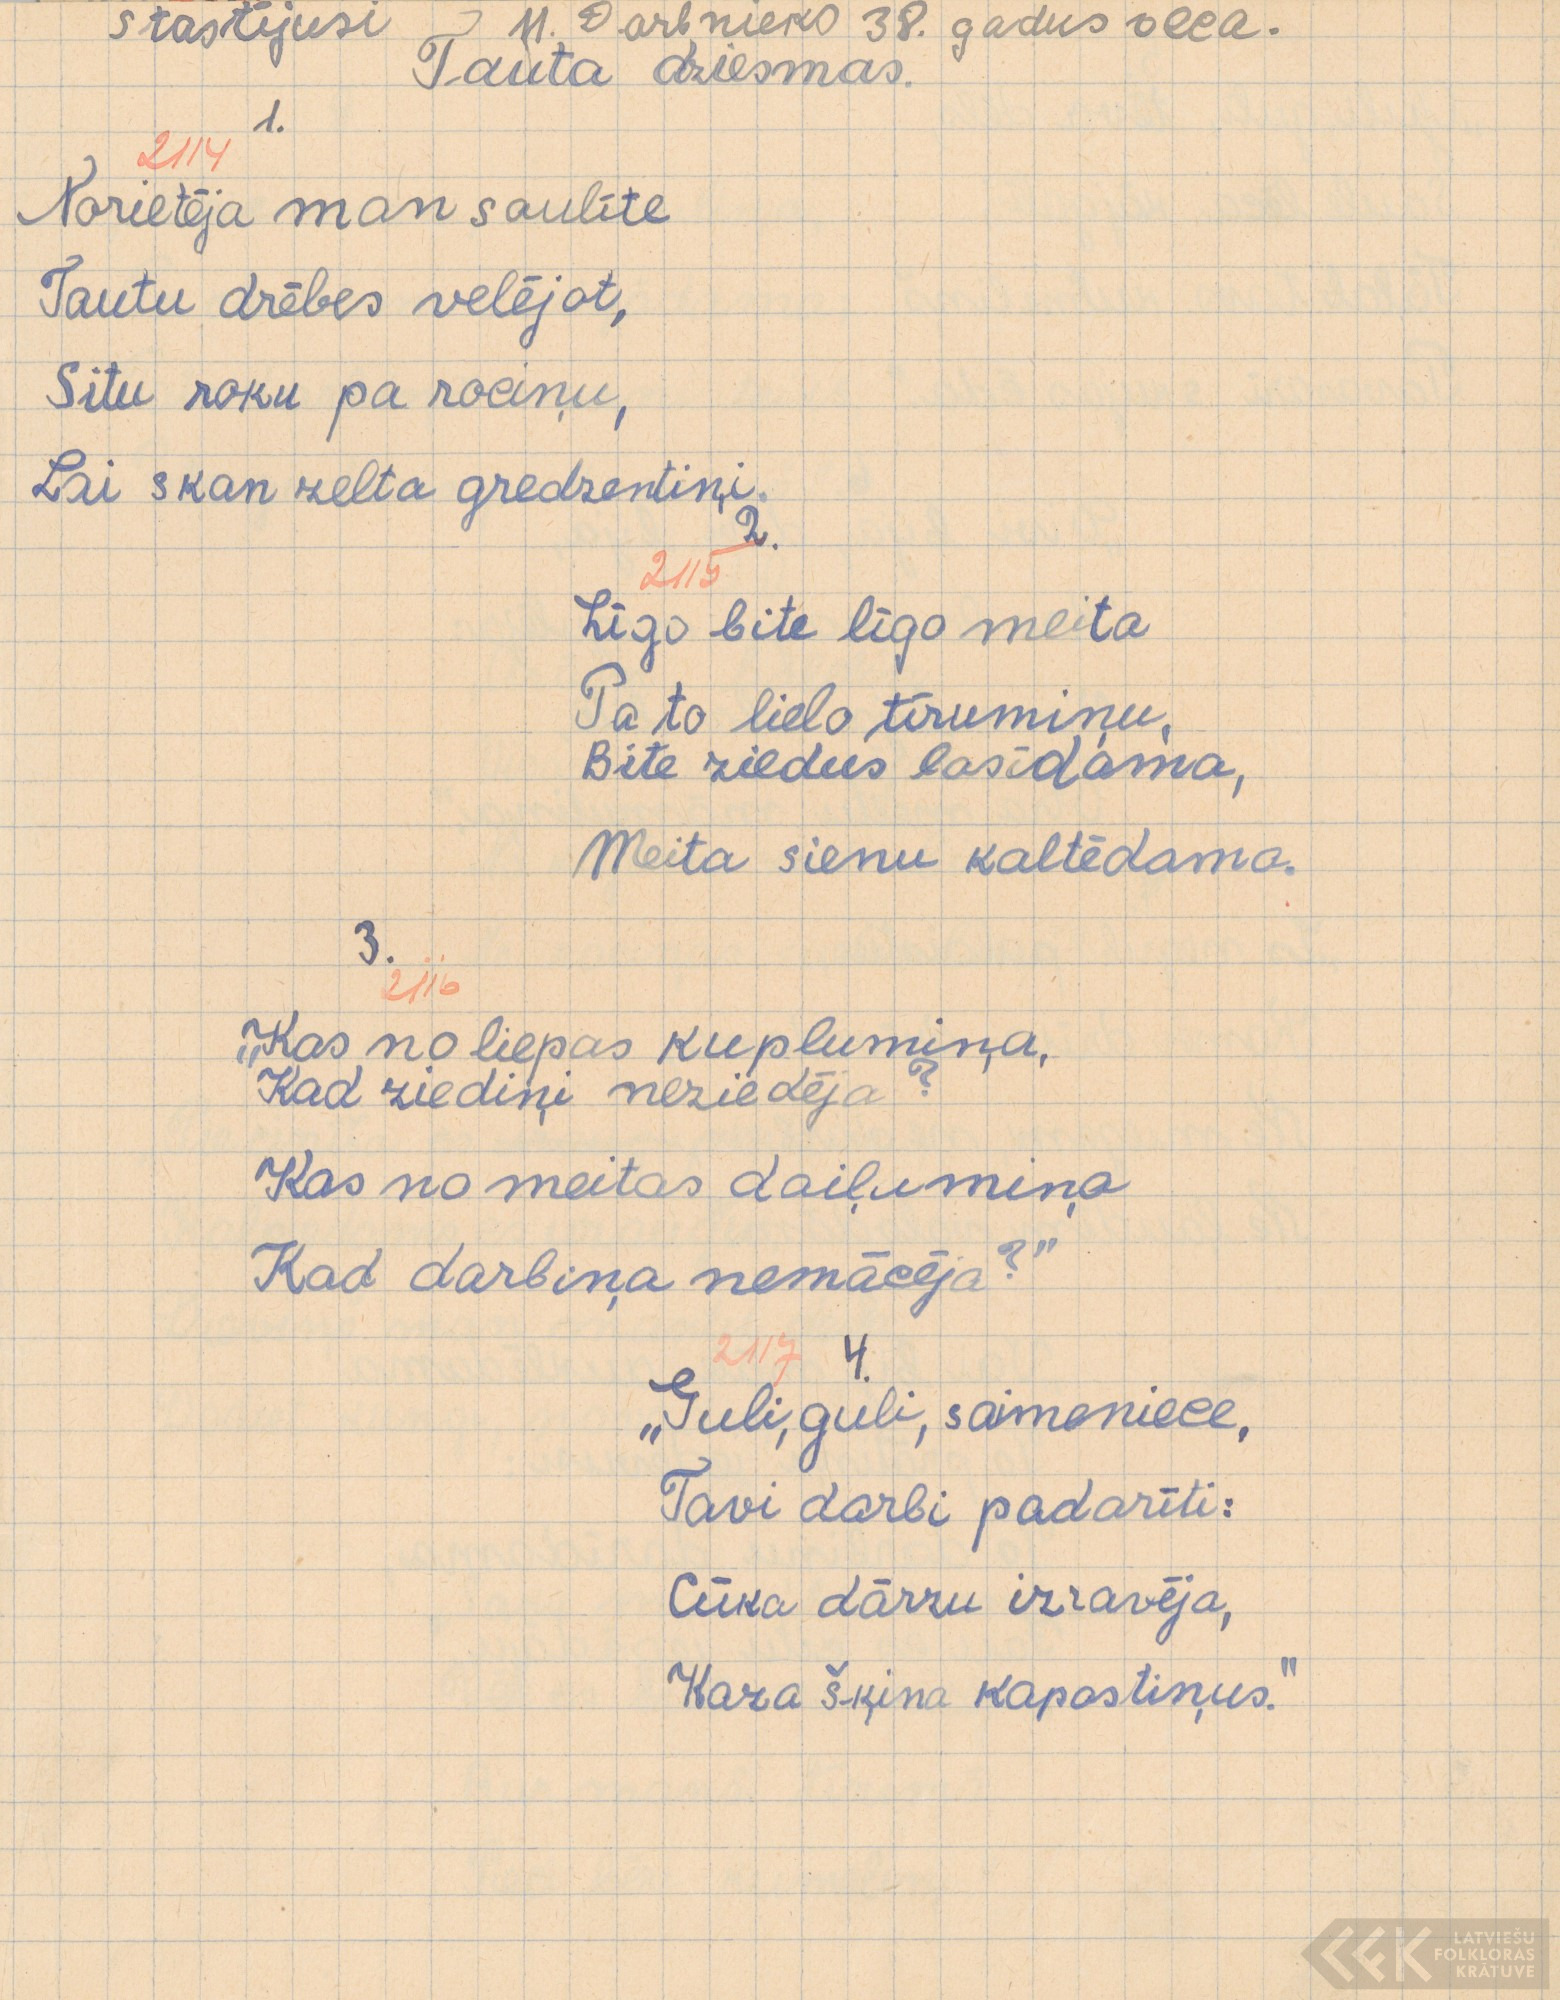 stastījusi M. Darbnieko 38. gadus veca.
Tauta dziesmas.
1.
2114
Norietēja man saulīte
Tautu drēbes velējot,
Situ roku pa rociņu,
Lai skan zelta gredzentiņi.
2.
2115
Līgo bite līgo meita
Pa to lielo tīrumiņu,
Bite ziedus lasīdama,
Meita sienu kaltēdama.
3.
2116
„Kas no liepas kuplumiņa,
Kad ziediņi neziedēja?
Kas no meitas daiļumiņa
Kad darbiņa nemācēja?"
2117 4.
„Guli, guli, saimeniece,
Tavi darbi padarīti:
Cūka dārzu izravēja,
Kaza šķina kapostiņus."
LATVIEŠU
FOLKLORAS
KRĀTUVE